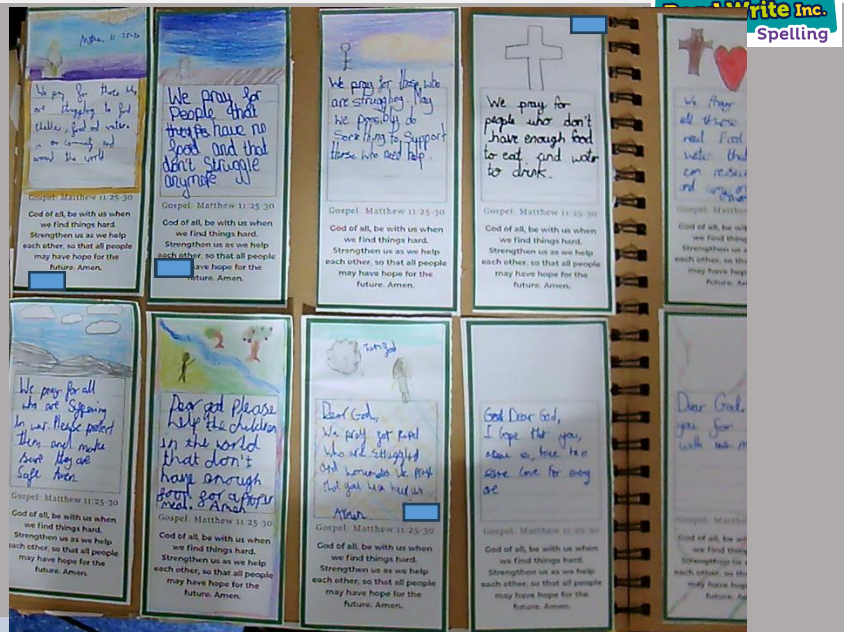 Write Inc.
Spelling
Matthew 11 25-30
We pray for those who
are struggling to find
shelter, food and water
in our community and
around the world
Gospel: Matthew 11:25-30
God of all, be with us when
we find things hard.
Strengthen us as we help
each other, so that all people
may have hope for the
future. Amen.
We pray for
People that
have no
food and that
don't struggle
anymore
Gospel: Matthew 11:25-30
God of all, be with us when
we find things hard.
Strengthen us as we help
each other, so that all people
have hope for the
future. Amen.
We pray for those who
are struggling. May
we possibly do
Something to Support
those who need help.
Gospel: Matthew 11:25-30
God of all, be with us when
we find things hard.
Strengthen us as we help
each other, so that all people
may have hope for the
future. Amen.
We pray for
people who don't
have enough food
to eat and water
to drink.
Gospel: Matthew 11:25-30
God of all, be with us when
we find things hard.
Strengthen us as we help
each other, so that all people
may have hope for the
future. Amen.
We Pray
all those
need Food
water that
can
and
Gospel: Matthew
God of all, be with
we find thing
Strengthen us as
each other, so that
may have hop
future. Am
We Pray for all
who are
in war. Please protect
them and make
sure they are
Safe Amen.
Gospel: Matthew 11:25-30
God of all, be with us when
we find things hard.
Strengthen us as we help
each other, so that all people
may have hope for the
future. Amen.
Dear god Please
help the children
in the world
that don't
have enough
food for a proper
meal. Amen
Gospel: Matthew 11:25-30
God of all, be with us when
we find things hard.
Strengthen us as we help
each other, so that all people
may have hope for the
future. Amen.
I am god
Dear God,
We pray
who are struggled
and We Pray
that you
Amen
Gospel: Matthew 11:25-30
God of all, be with us when
we find things hard.
Strengthen us as we help
each other, so that all people
may have hope for the
future. Amen.
God Dear God,
I hope that you,
same love for every
one
Gospel: Matthew 11:25-30
God of all, be with us when
we find things hard.
Strengthen us as we help
each other, so that all people
may have hope for the
future. Amen.
Dear God
you for
with
Gospel: Matthew
God of all, be with
we find thing
Strengthen us as
each other, so that
may have hop
future. Am